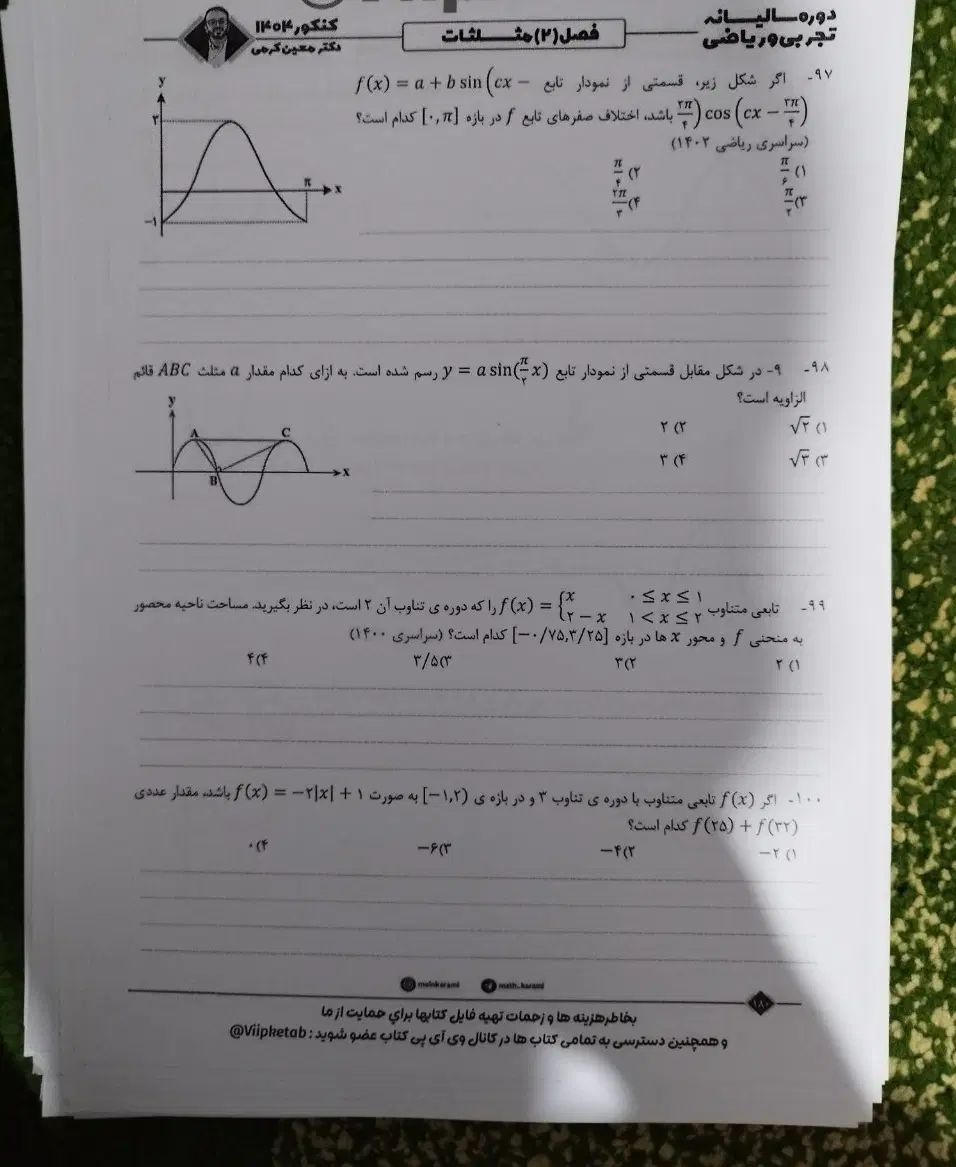 دوره سالیانه
تجربی و ریاضی
فصل (۲) مثلثات
کنکور ۱۴۰۴
دکتر معین کرمی
۹۷- اگر شکل زیر، قسمتی از نمودار تابع f(x) = a + b sin(cx −
۳π/۴) cos(cx − ۳π/۴) باشد، اختلاف صفرهای تابع f در بازه [۰,π] کدام است؟
(سراسری ریاضی ۱۴۰۲)
۱) π/۶ ۲) π/۴
۳) π/۲ ۴) ۲π/۳
y
۲
π
x
−۱
۹۸- ۹- در شکل مقابل قسمتی از نمودار تابع y = a sin(π/۲ x) رسم شده است. به ازای کدام مقدار a مثلث ABC قائم
الزاویه است؟
۱) √۲ ۲) ۲
۳) √۳ ۴) ۳
y
A C
B
x
۹۹- تابعی متناوب f(x) = {x ۰ ≤ x ≤ ۱
۲ − x ۱ < x ≤ ۲ را که دوره ی تناوب آن ۲ است، در نظر بگیرید. مساحت ناحیه محصور
به منحنی f و محور x ها در بازه [−۰/۷۵,۳/۲۵] کدام است؟ (سراسری ۱۴۰۰)
۱) ۲ ۲) ۳ ۳) ۳/۵ ۴) ۴
۱۰۰- اگر f(x) تابعی متناوب با دوره ی تناوب ۳ و در بازه ی [−۱,۲) به صورت f(x) = −۲|x| + ۱ باشد، مقدار عددی
f(۲۵) + f(۳۲) کدام است؟
۱) −۲ ۲) −۴ ۳) −۶ ۴) ۰
moinkarami math_karami
۱۸۰
بخاطر هزینه ها و زحمات تهیه فایل کتابها برای حمایت از ما
و همچنین دسترسی به تمامی کتاب ها در کانال وی آی پی کتاب عضو شوید : @Viipketab